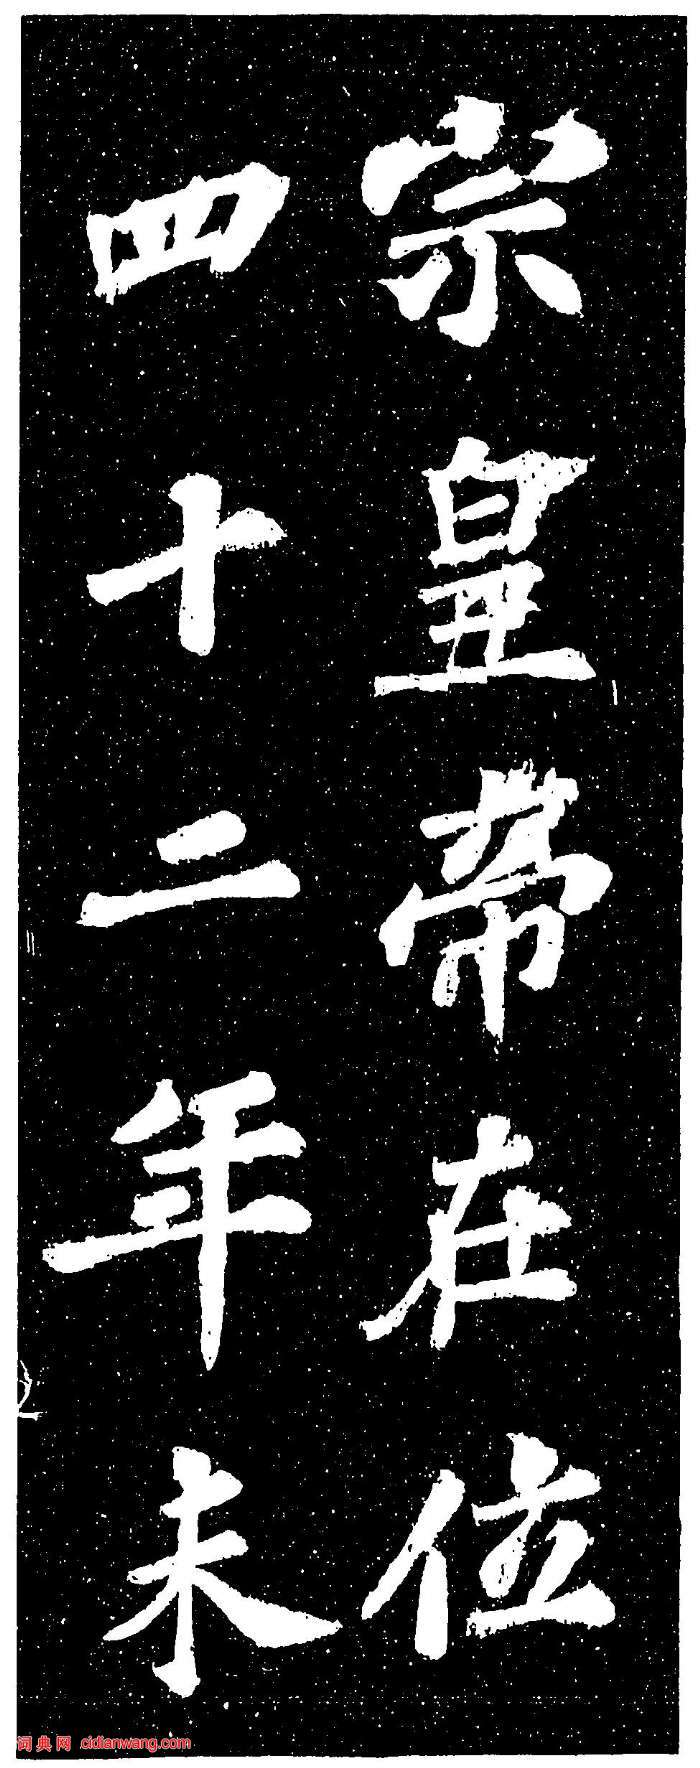 宗皇帝在位
四十二年未
词典网 cidianwang.com